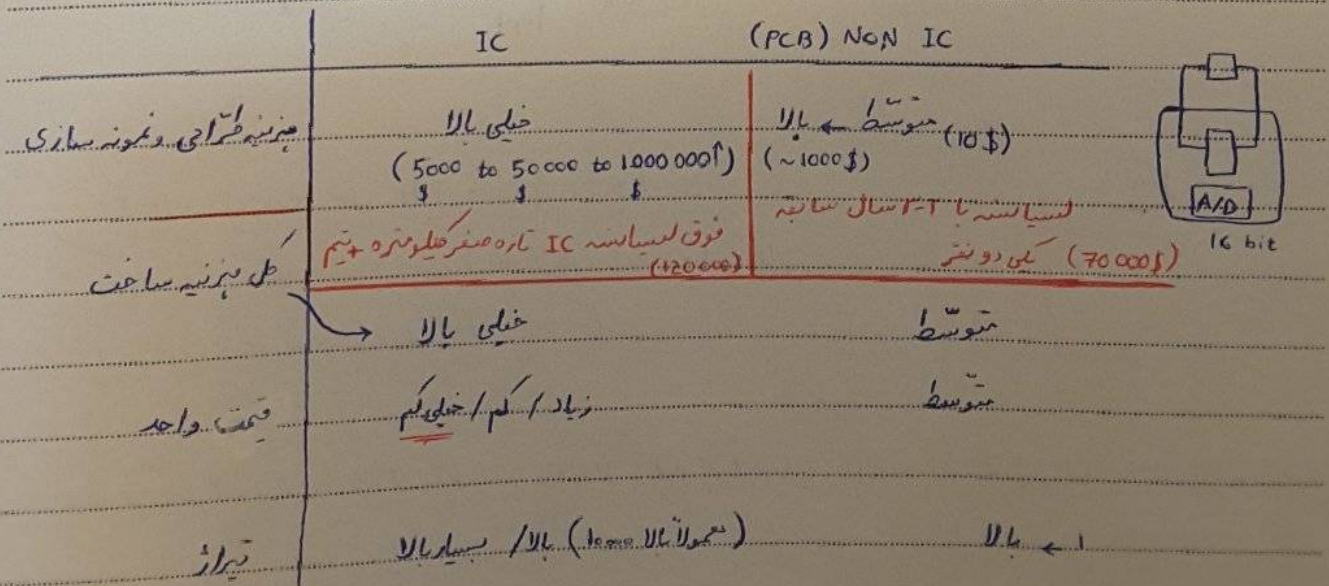 IC (PCB) NON IC
هزینه طراحی و نمونه سازی
خیلی بالا
(5000 to 50000 to 1000000↑)
$ $ $
(10$) متوسّط ← بالا
(~1000$)
فوق لیسانس IC تازه صفر کیلومتره + تیم
(120000)
لیسانس با ۲-۳ سال سابقه
(70000$) یکی دو نفر
A/D
16 bit
کل هزینه ساخت
خیلی بالا
متوسّط
قیمت واحد
زیاد / کم / خیلی کم
متوسّط
تیراژ
بالا / بسیار بالا (معمولاً بالا 10000)
۱ ← بالا